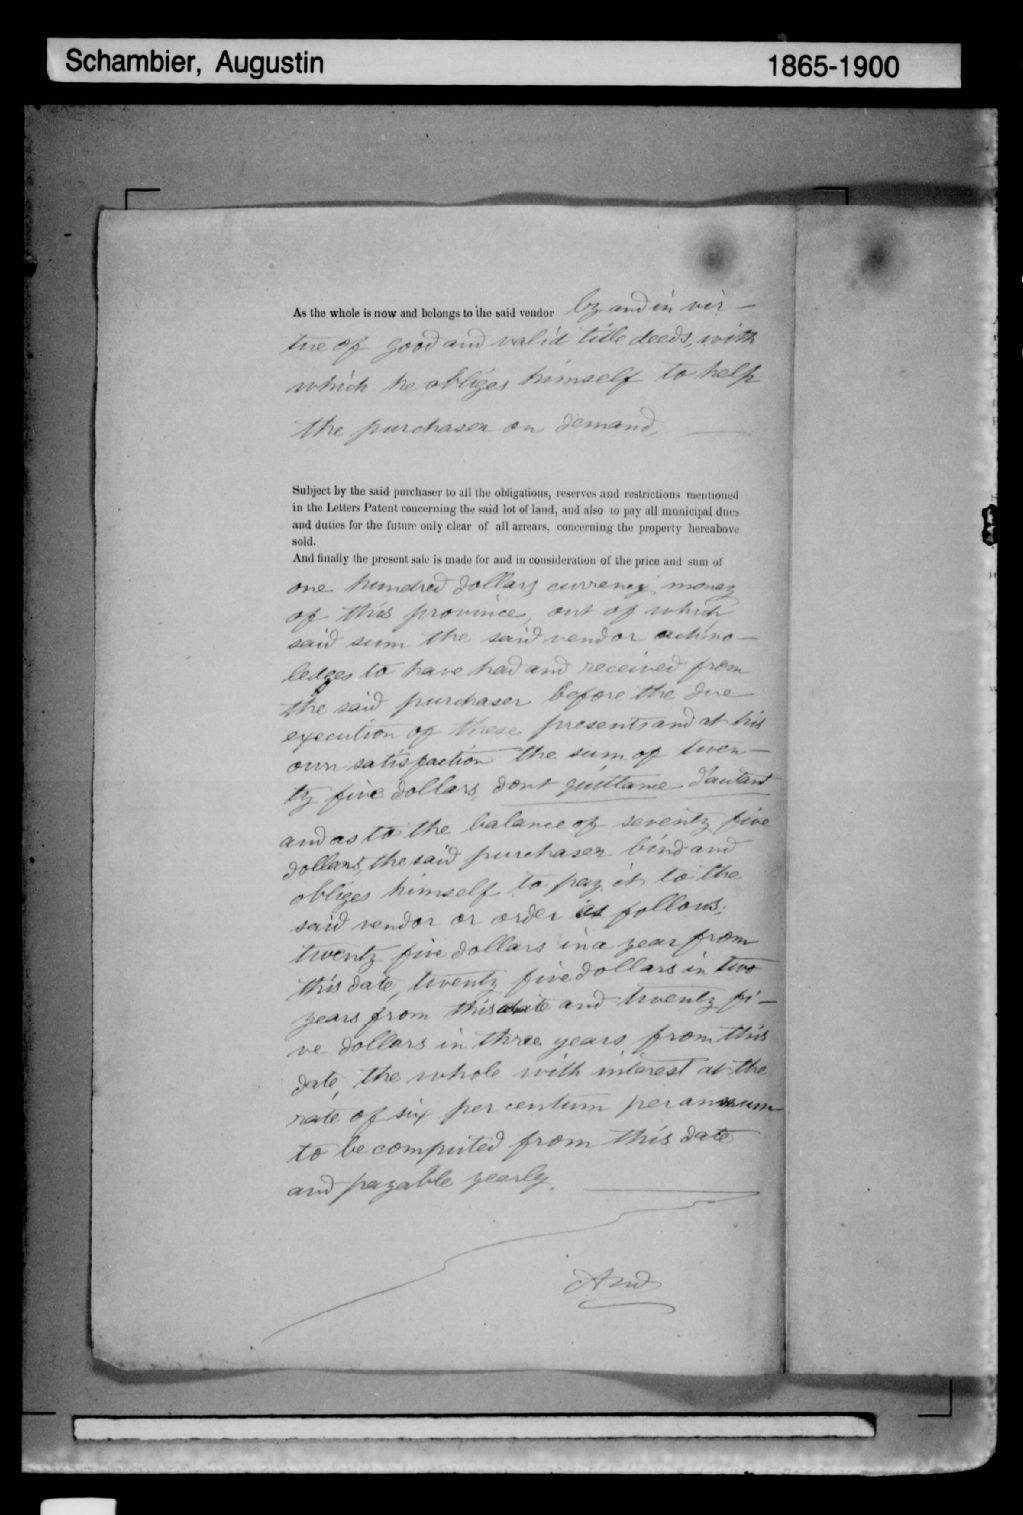 Schambier, Augustin
1865-1900
As the whole is now and belongs to the said vendor by and in vir-
tue of good and valid title deeds, with
which he obliges himself to help
the purchaser on demand.
Subject by the said purchaser to all the obligations, reserves and restrictions mentioned
in the Letters Patent concerning the said lot of land, and also to pay all municipal dues
and duties for the future only clear of all arrears, concerning the property hereabove
sold.
And finally the present sale is made for and in consideration of the price and sum of
one hundred dollars, currency money
of this province, out of which
said sum the said vendor ackno-
ledges to have had and received from
the said purchaser before the due
execution of these presents and at his
own satisfaction the sum of twen-
ty five dollars, dont quittance d'autant
and as to the balance of seventy five
dollars, the said purchaser bind and
obliges himself to pay it to the
said vendor or order as follows:
twenty five dollars in a year from
this date, twenty five dollars in two
years from this date and twenty fi-
ve dollars in three years from this
date, the whole with interest at the
rate of six per centum per annum
to be computed from this date
and payable yearly.
And